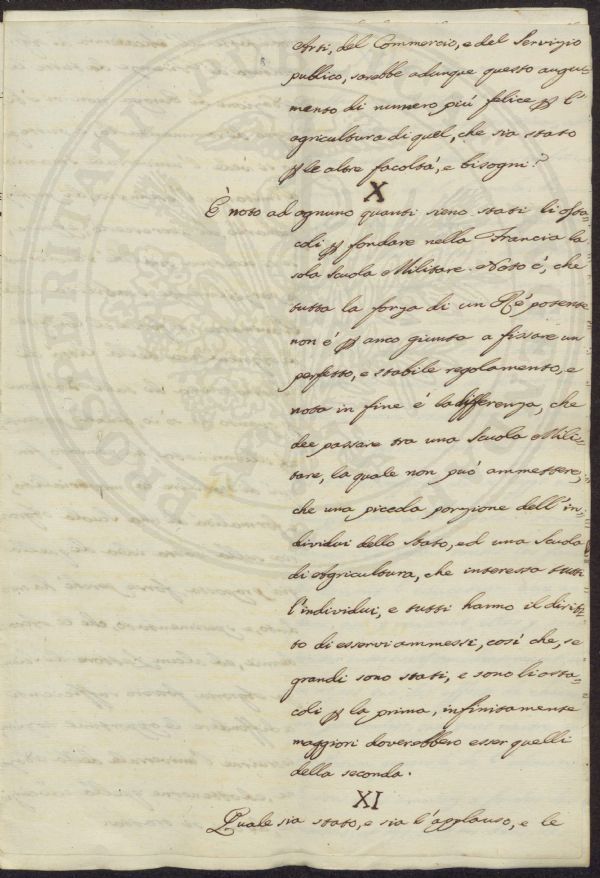 Arti, del Commercio, e del Servigio
publico, sarebbe adunque questo augu-
mento di numero piú felice ꝑ l'
agricultura di quel, che sia stato
ꝑ le altre facoltá, e bisogni?
X
È noto ad ognuno quanti sieno stati li osta-
coli ꝑ fondare nella Francia la
sola Scuola Militare. Noto é, che
tutta la forza di un Ré potente
non é ꝑ anco giunta a fissare un
perfetto, e stabile regolamento, e
nota in fine é la differenza, che
dee passare tra una Scuola Mili-
tare, la quale non puó ammettere,
che una piccola porzione dell'in-
dividui dello Stato, ed una Scuola
di Agricultura, che interessa tutti
l'individui, e tutti hanno il dirit-
to di esservi ammessi, cosí che, se
grandi sono stati, e sono li osta-
coli ꝑ la prima, infinitamente
maggiori doverebbero esser quelli
della seconda.
XI
Quale sia stato, e sia l'applauso, e le